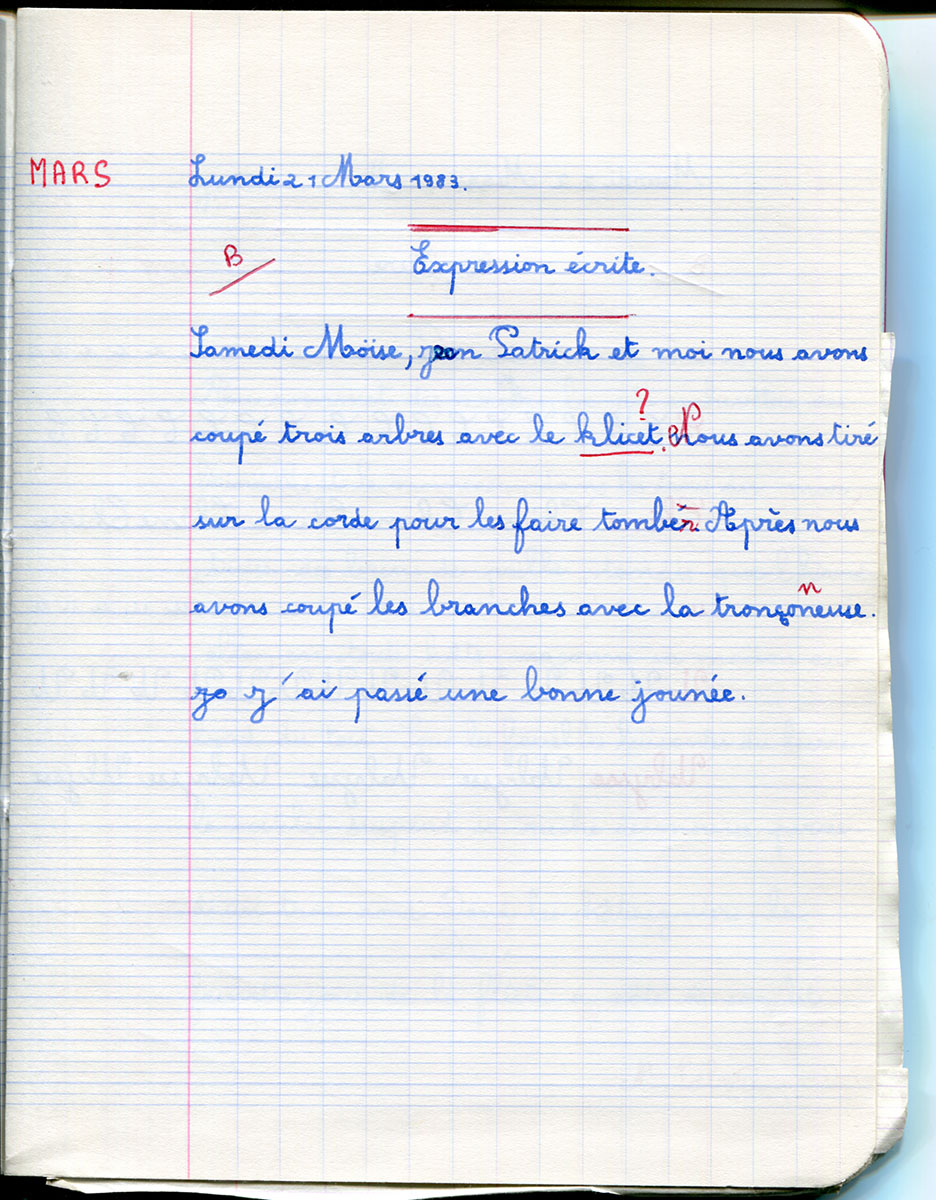 MARS
Lundi 21 Mars 1983.
B
Expression écrite.
Samedi Moïse, jean Patrick et moi nous avons
?
coupé trois arbres avec le klicet. Nous avons tiré
sur la corde pour les faire tomber. Après nous
n
avons coupé les branches avec la tronçoneuse.
j'ai passé une bonne jounée.